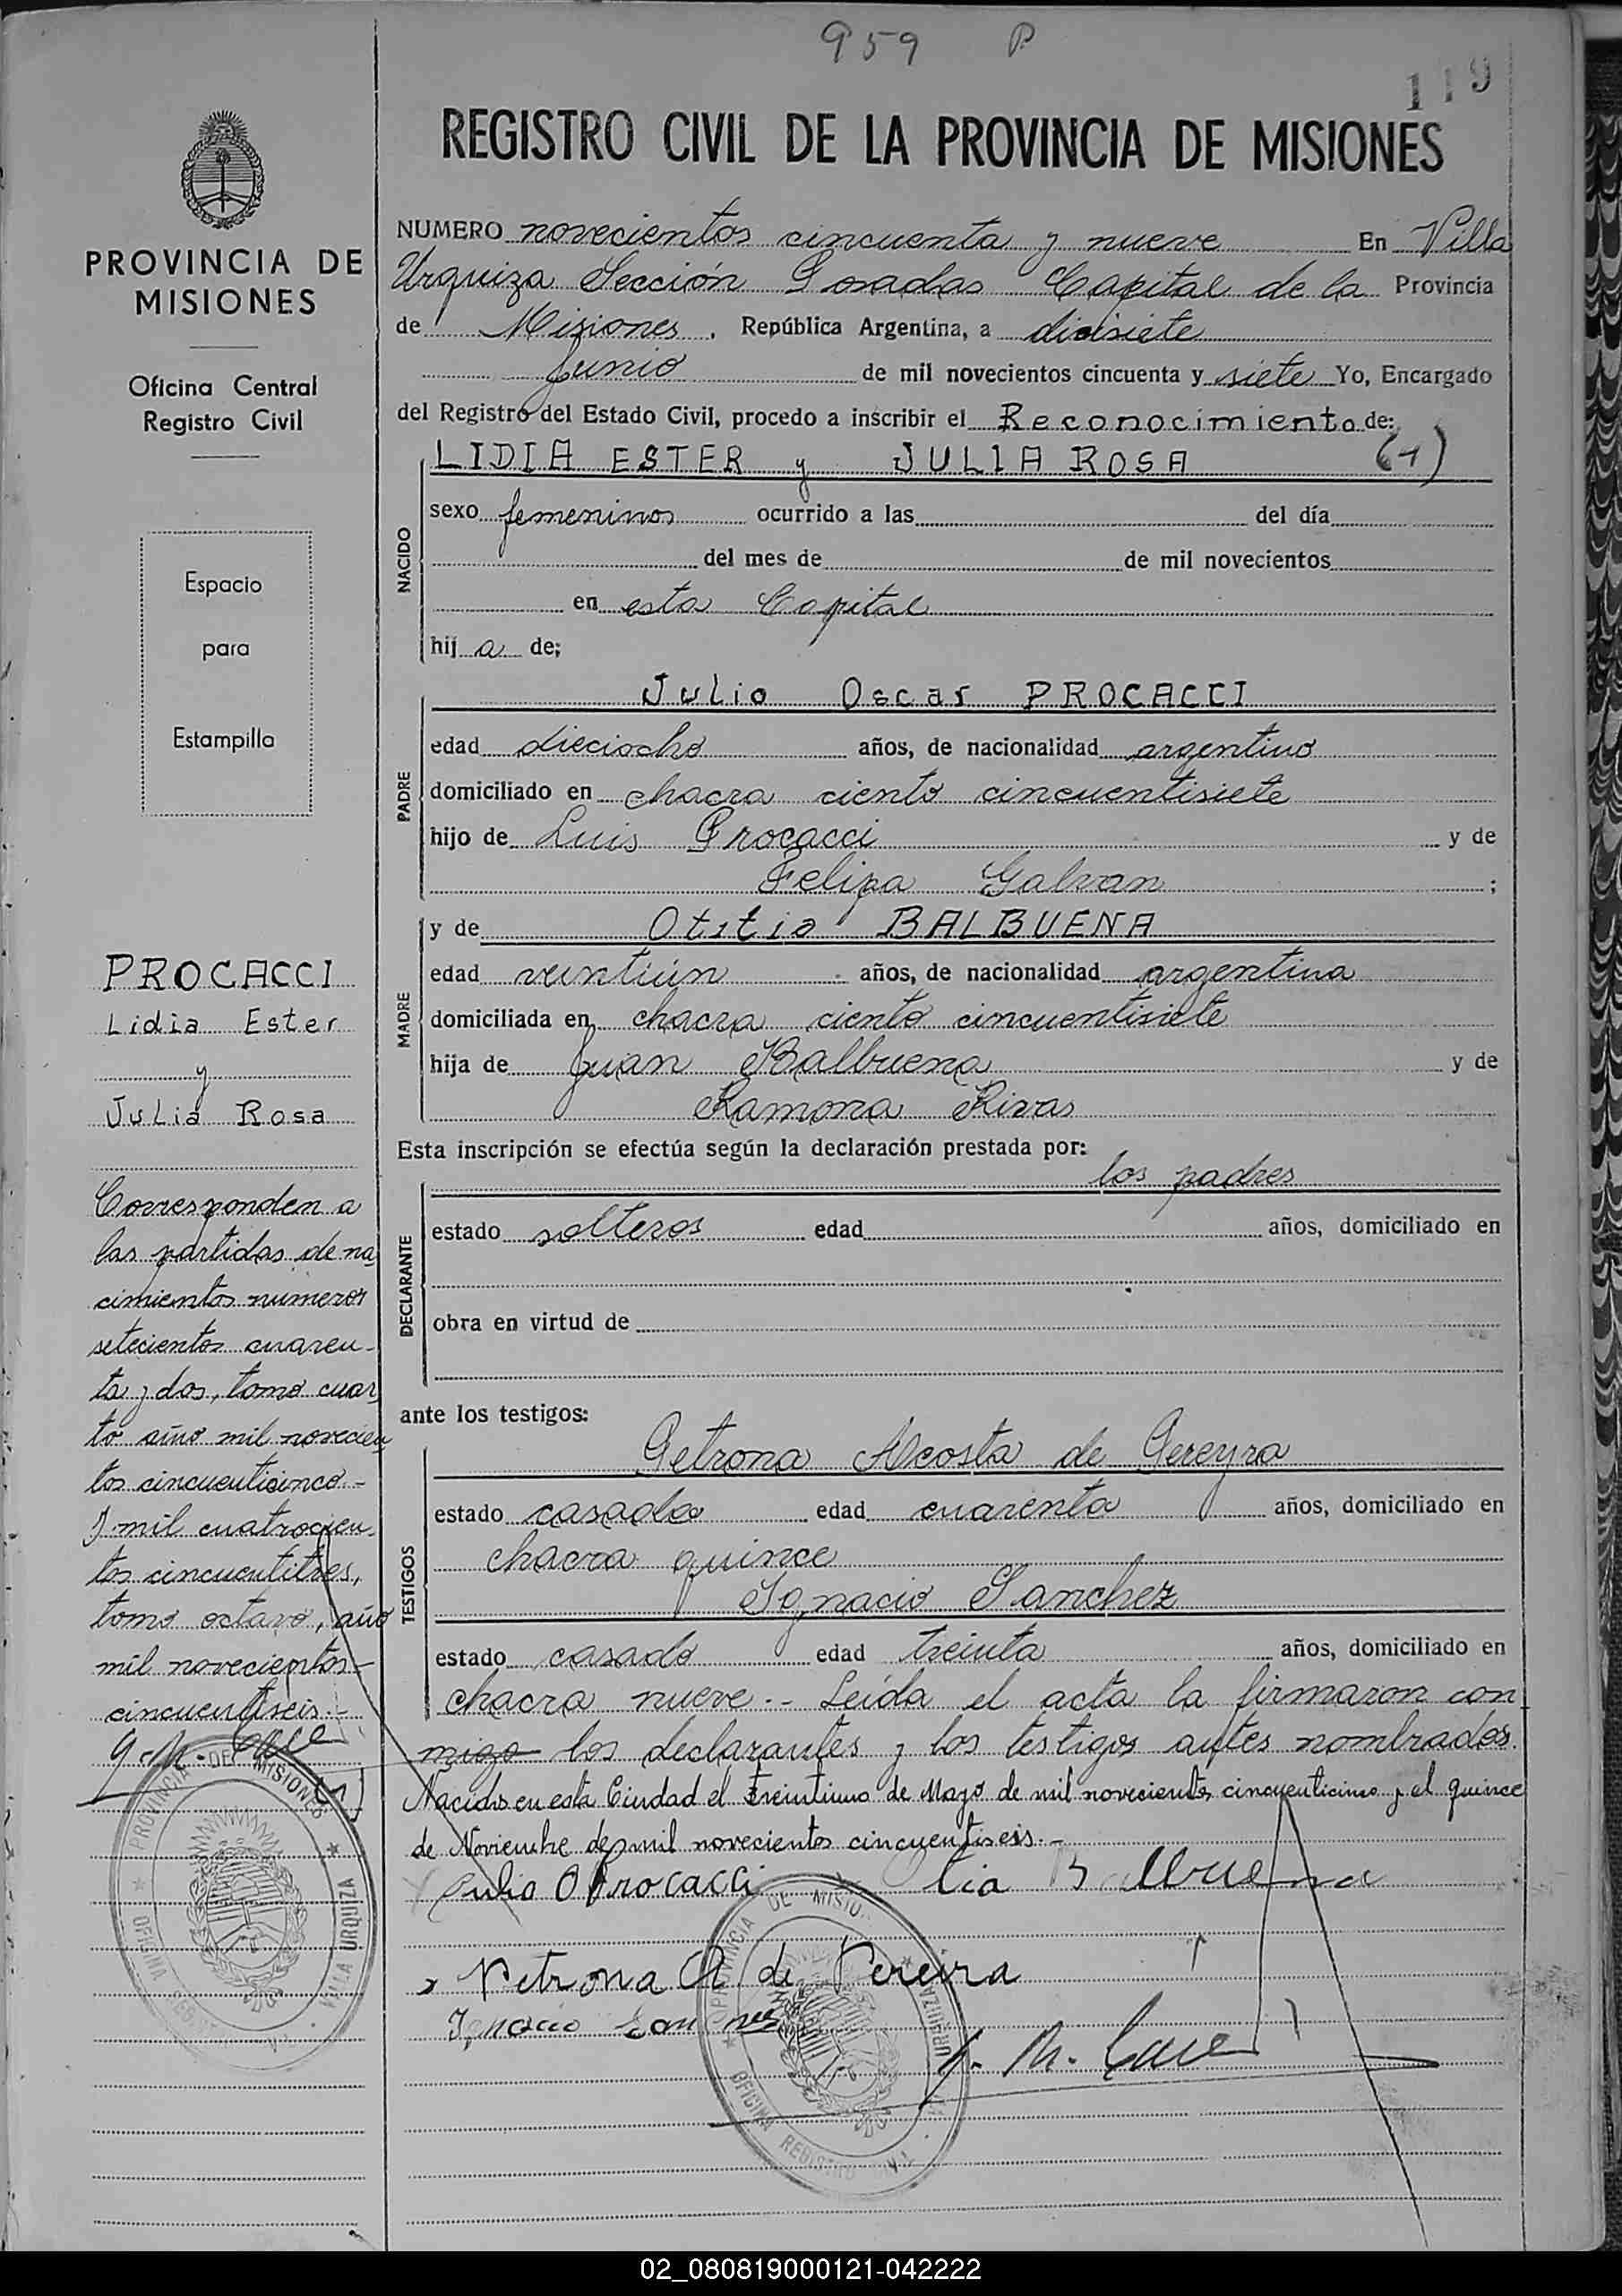 959 P
119
REGISTRO CIVIL DE LA PROVINCIA DE MISIONES
PROVINCIA DE
MISIONES
Oficina Central
Registro Civil
Espacio
para
Estampilla
PROCACCI
Lidia Ester
y
Julia Rosa
Corresponden a
las partidas de na
cimientos numeros
setecientos cuaren-
ta y dos, tomo cuar
to año mil novecien
tos cincuenticinco-
Y mil cuatrocien
tos cincuentitres,
tomo octavo, año
mil novecientos
cincuentiseis.-
NUMERO novecientos cincuenta y nueve En Villa
Urquiza Sección Posadas Capital de la Provincia
de Misiones, República Argentina, a dicisiete
Junio de mil novecientos cincuenta y siete Yo, Encargado
del Registro del Estado Civil, procedo a inscribir el Reconocimiento de:
LIDIA ESTER y JULIA ROSA (1)
NACIDO
sexo femeninos ocurrido a las del día
del mes de de mil novecientos
en esta Capital
hij a de;
Julio Oscar PROCACCI
PADRE
edad dieciocho años, de nacionalidad argentino
domiciliado en chacra ciento cincuentisiete
hijo de Luis Procacci y de
Felipa Galvan ;
y de Otitia BALBUENA
MADRE
edad veintiún años, de nacionalidad argentina
domiciliada en chacra ciento cincuentisiete
hija de Juan Balbuena y de
Ramona Rivas
Esta inscripción se efectúa según la declaración prestada por:
los padres
DECLARANTE
estado solteros edad años, domiciliado en
obra en virtud de
ante los testigos:
Petrona Acosta de Pereyra
TESTIGOS
estado casada edad cuarenta años, domiciliado en
chacra quince
Ignacio Sanchez
estado casado edad treinta años, domiciliado en
chacra nueve.- Leída el acta la firmaron con
migo los declarantes y los testigos antes nombrados.
Nacidas en esta Ciudad el treintiuno de Mayo de mil novecientos cincuenticinco y el quince
de Noviembre de mil novecientos cincuentiseis.-
Julio O Procacci tia Balbuena
Petrona A de Pereira
Ignacio
PROVINCIA DE MISIONES
OFICINA VILLA URQUIZA
PROVINCIA DE MISIO
OFICINA REGISTRO URQUIZA
02_080819000121-042222